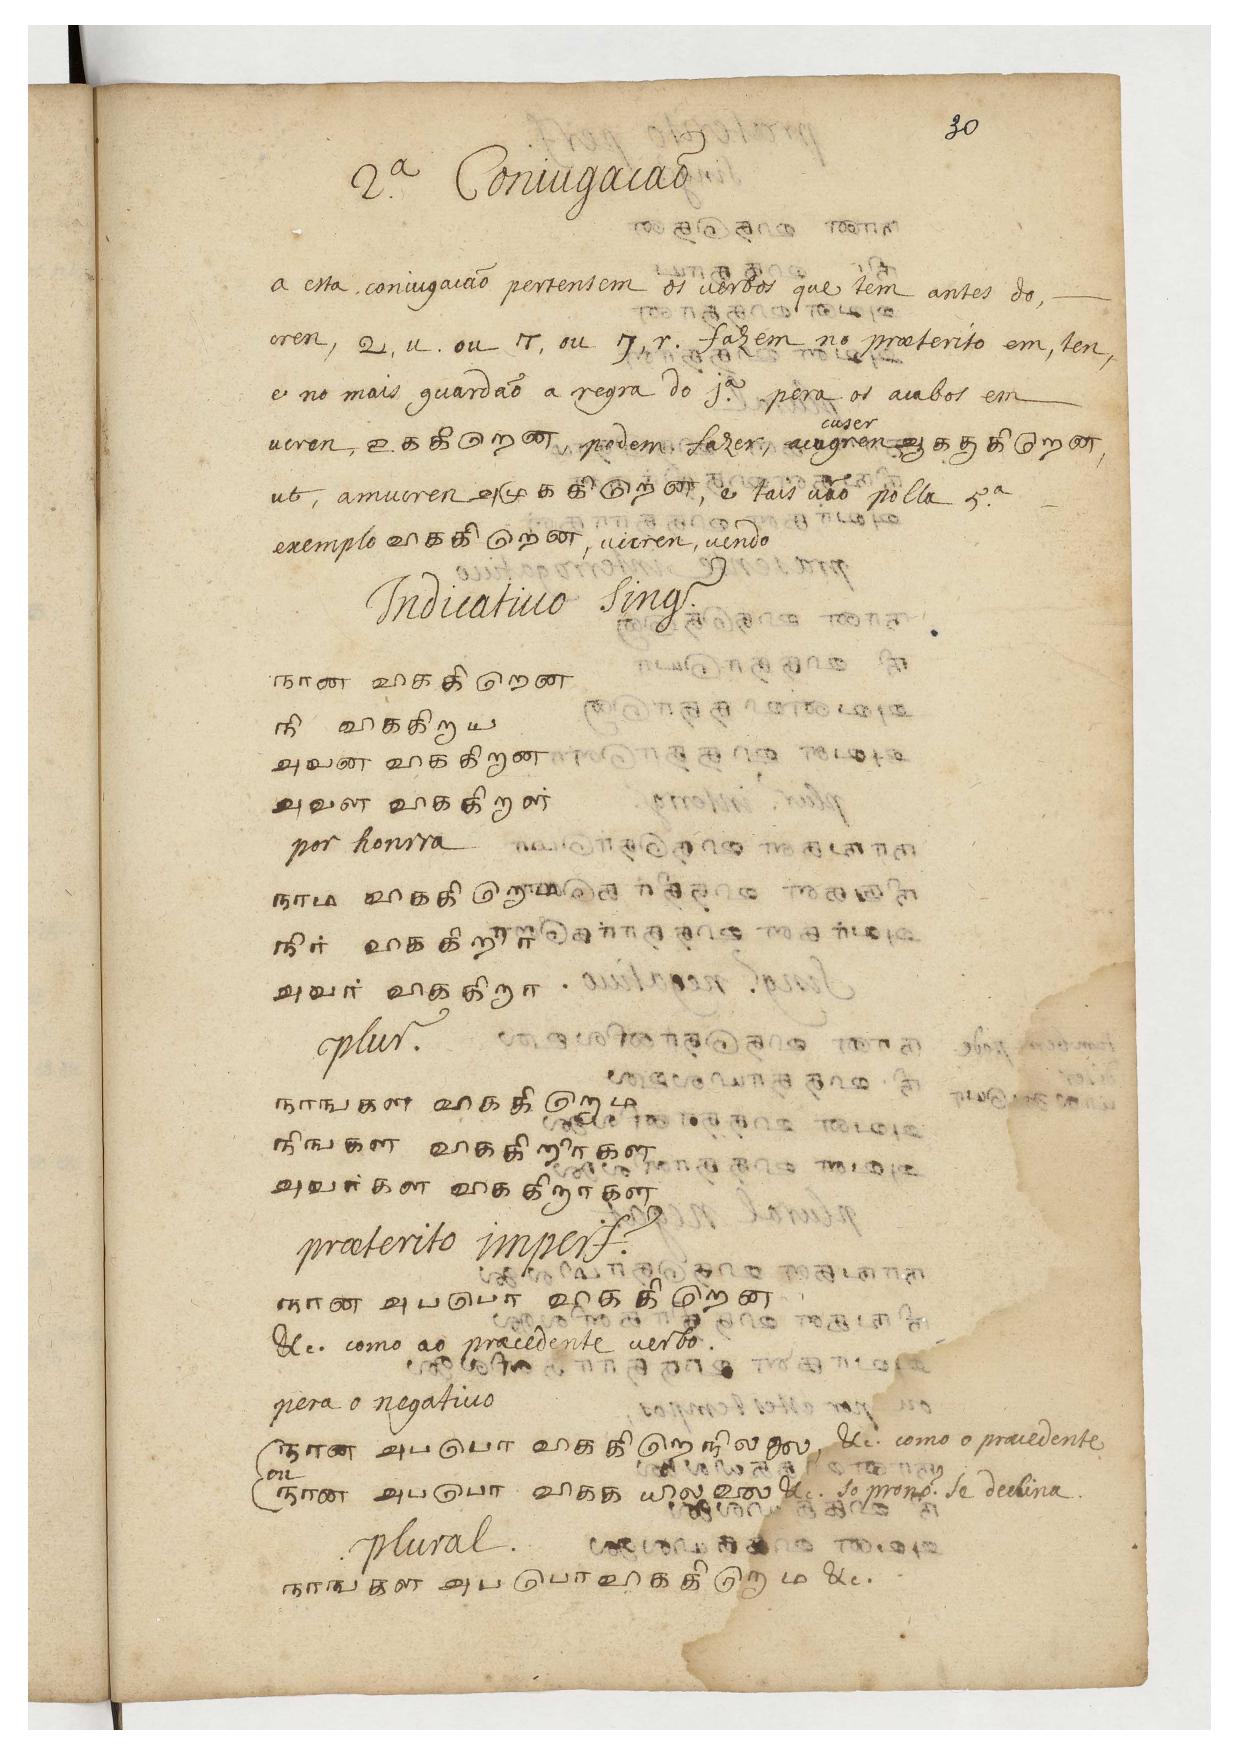 30
2.ª Coniugacaõ
a esta coniugacaõ pertensem os uerbos que tem antes do,
cren, உ, u. ou т, ou ர, r. fazem no præterito em, ten,
e no mais guardaõ a regra do j.ª pera os acabos em
cuser
ucren, உககிறென podem fazer, ஆகதகிறென,
ut, amucren அமுககிறென, e tais uaõ polla 5.ª
exemplo விககிறென, uicren, uendo
Indicatiuo Sing.
நான விககிறென
நி விககிறய
அவன விககிறன
அவள விககிறள
por honrra
நாம விககிறொம
நிர் விககிறிர்
அவர் விககிறா.
plur.
நாஙகள விககிறொம
நிஙகள விககிறிர்கள
அவர்கள விககிறாகள
præterito imperf.
நான அபபொ விககிறென
&c. como ao præcedente uerbo.
pera o negatiuo
நான அபபொ விககிறெநிலலை, &c. como o præcedente
ou
நான அபபொ விகக யிலலை &c. so pron. se declina.
plural.
நாஙகள அபபொ விககிறொம &c.